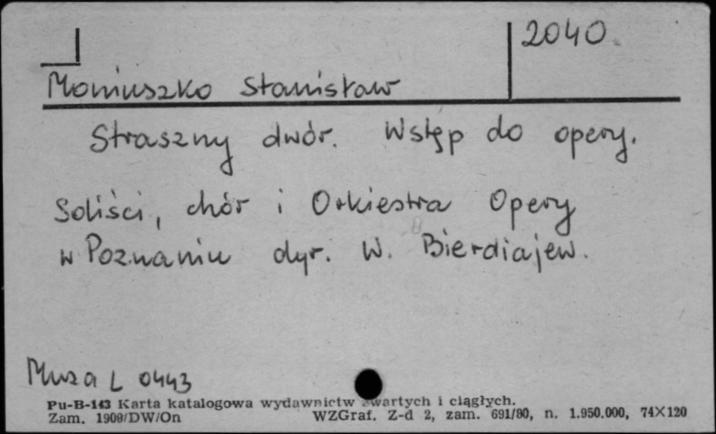 2040.
Moniuszko Stanisław
Straszny dwór. Wstęp do opery.
Soliści, chór i Orkiestra Opery
w Poznaniu dyr. W. Bierdiajew.
Muza L 0443
Pu-B-143 Karta katalogowa wydawnictw zwartych i ciągłych.
Zam. 1909/DW/On WZGraf. Z-d 2, zam. 691/80, n. 1.950.000, 74X120